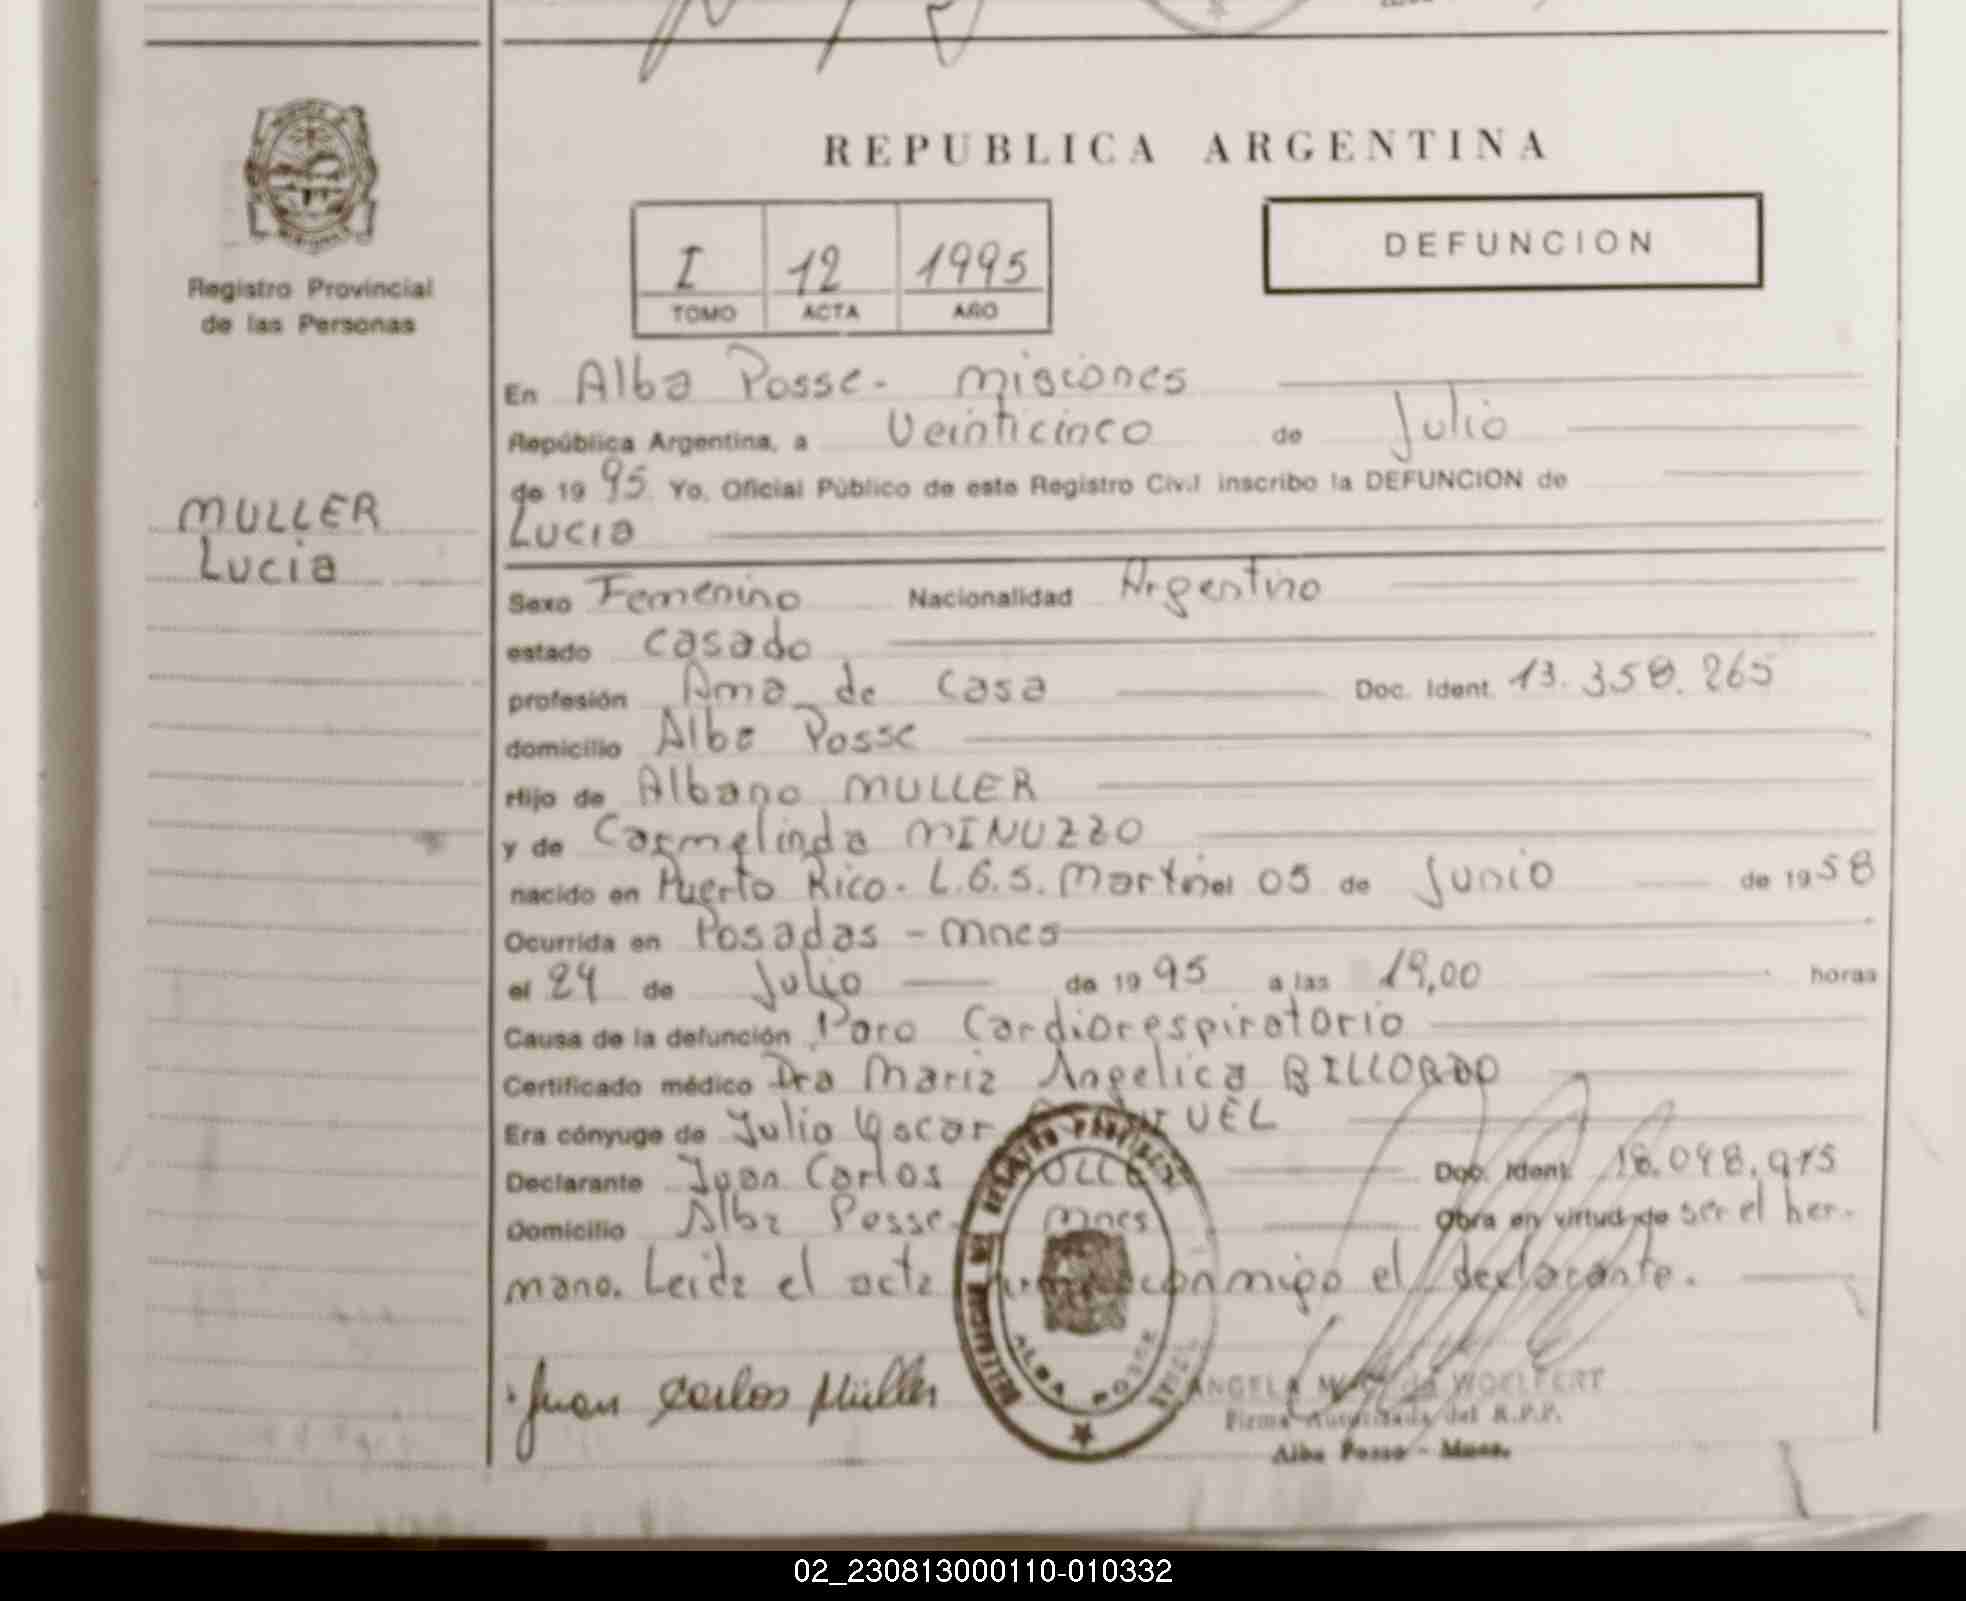 REPUBLICA ARGENTINA
Registro Provincial
de las Personas
I 12 1995
TOMO ACTA AÑO
DEFUNCION
MULLER
Lucia
En Alba Posse - Misiones
República Argentina, a Veinticinco de Julio
de 1995 Yo, Oficial Público de este Registro Civil inscribo la DEFUNCION de
Lucia
Sexo Femenino Nacionalidad Argentino
estado casado
profesión Ama de Casa Doc. Ident. 13.358.265
domicilio Alba Posse
Hijo de Albano MULLER
y de Carmelinda MINUZZO
nacido en Puerto Rico - L.G.S. Martin el 05 de Junio de 1958
Ocurrida en Posadas - Mnes
el 24 de Julio de 1995 a las 19,00 horas
Causa de la defunción Paro Cardiorespiratorio
Certificado médico Dra Maria Angelica BILLORDO
Era cónyuge de Julio Oscar
Declarante Juan Carlos Doc. Ident. 18.048.975
Domicilio Alba Posse - Mnes Obra en virtud de ser el her-
mano. Leida el acta firma conmigo el declarante.
Juan Carlos Müller
ALBA POSSE
ANGELA WOELFERT
Firma Autorizada del R.P.P.
Alba Posse - Mnes.
02_230813000110-010332